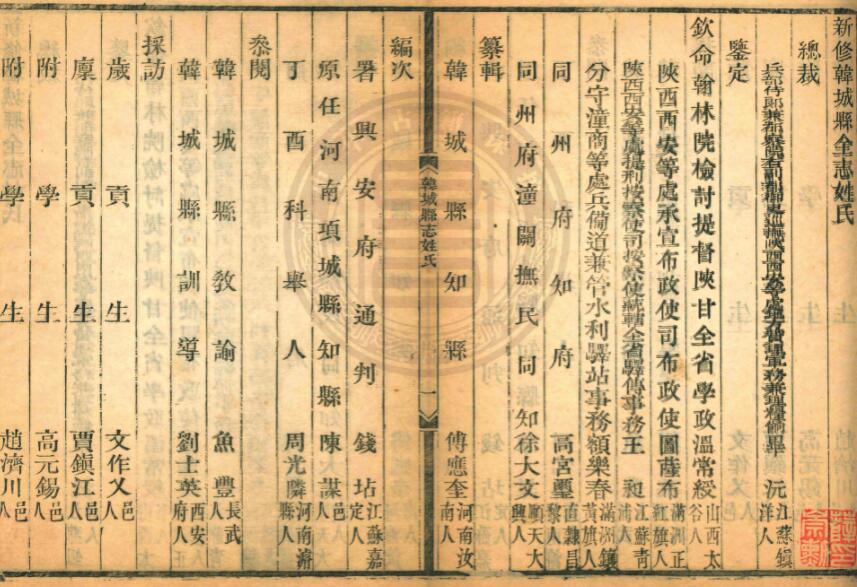 新修韓城縣全志姓氏
總裁
鑒定
欽命翰林院檢討提督陝甘全省學政溫常綬山西太谷人
陝西西安等處承宣布政使司布政使圖薩布滿洲正紅旗人
陝西西安等處提刑按察使司按察使統轄全省驛傳事務王昶江蘇青浦人
分守潼商等處兵備道兼管水利驛站事務額樂春滿洲鑲黃旗人
同州府知府高宮璽直隸昌黎人
同州府潼關撫民同知徐大文順天大興人
纂輯
韓城縣知縣傅應奎河南汝南人
韓城縣志姓氏
一
編次
署興安府通判錢坫江蘇嘉定人
原任河南項城縣知縣陳謀邑人
丁酉科舉人周光隣河南濬縣人
叅閱
韓城縣教諭魚豐長武人
韓城縣訓導劉士英西安府人
採訪
歲貢生文作乂邑人
廪貢生賈鎮江邑人
附學生高元錫邑人
附學生趙濟川邑人